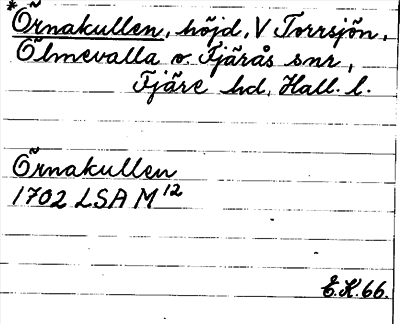 *Örnakullen, höjd, V Torrsjön,
Ölmevalla o. Fjärås snr,
Fjäre hd, Hall. l.
Örnakullen
1702 LSA M 12
E.K. 66.